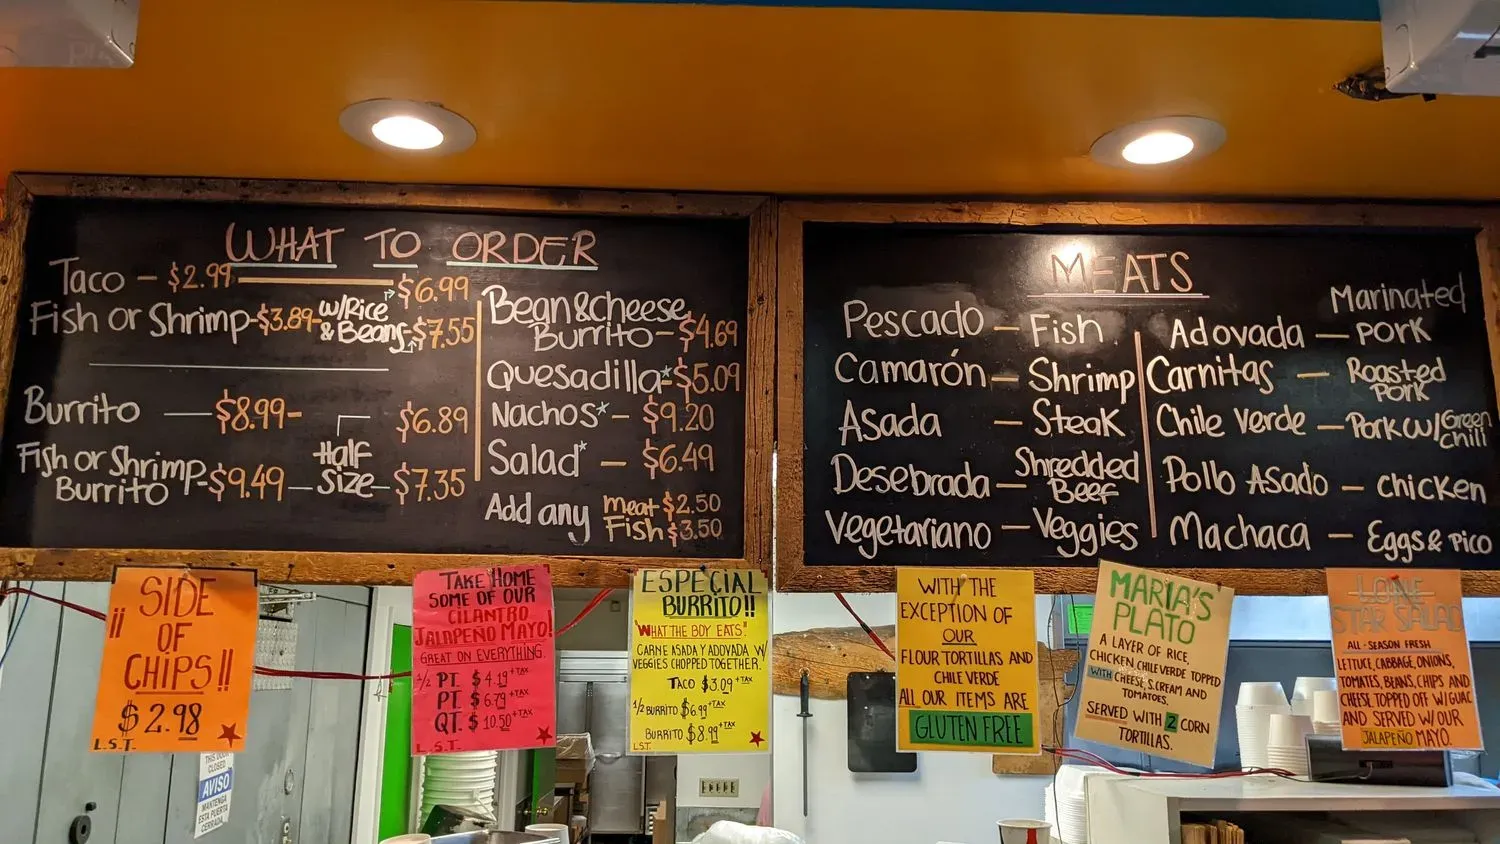 WHAT TO ORDER
Taco - $2.99 $6.99
Fish or Shrimp-$3.89- w/Rice & Beans $7.55
Burrito — $8.99- $6.89
Half Size
Fish or Shrimp Burrito - $9.49 - $7.35
Bean & cheese
Burrito - $4.69
Quesadilla*-$5.09
Nachos* - $9.20
Salad* - $6.49
Add any meat $2.50
Fish $3.50
MEATS
Pescado — Fish
Camarón — Shrimp
Asada — Steak
Desebrada — Shredded Beef
Vegetariano — Veggies
Adovada — Marinated PORK
Carnitas — Roasted PORK
Chile verde — Pork w/ Green chili
Pollo Asado — chicken
Machaca — Eggs & pico
¡¡ SIDE
OF
CHIPS!!
$2.98
L.S.T.
TAKE HOME
SOME OF OUR
CILANTRO
JALAPEÑO MAYO!
GREAT ON EVERYTHING.
1/2 PT. $4.19+TAX
PT. $6.79+TAX
QT. $10.50+TAX
L.S.T.
ESPECIAL
BURRITO!!
"WHAT THE BOY EATS."
CARNE ASADA Y ADOVADA W/
VEGGIES CHOPPED TOGETHER.
TACO $3.09+TAX
1/2 BURRITO $6.99+TAX
BURRITO $8.99+TAX
L.S.T.
WITH THE
EXCEPTION OF
OUR
FLOUR TORTILLAS AND
CHILE VERDE
ALL OUR ITEMS ARE
GLUTEN FREE
MARIA'S
PLATO
A LAYER OF RICE,
CHICKEN, CHILE VERDE TOPPED
WITH CHEESE, S.CREAM AND
TOMATOES.
SERVED WITH 2 CORN
TORTILLAS.
LONE
STAR SALAD
ALL-SEASON FRESH
LETTUCE, CABBAGE, ONIONS,
TOMATES, BEANS, CHIPS AND
CHEESE TOPPED OFF W/GUAC
AND SERVED W/OUR
JALAPEÑO MAYO.
CLOSED
AVISO
MANTENGA
ESTA PUERTA
CERRADA